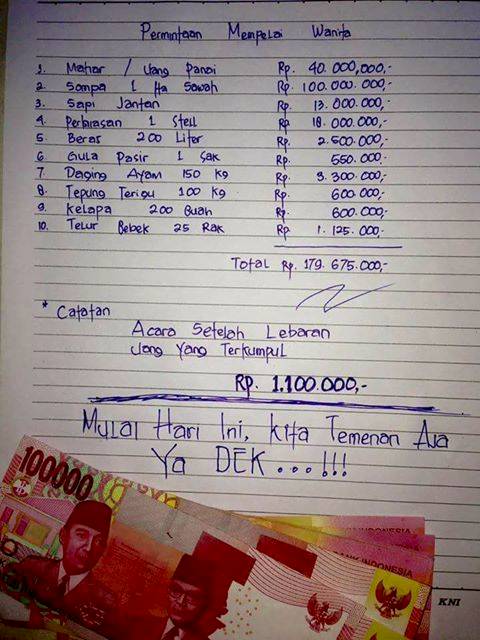 Permintaan Mempelai Wanita
1. Mahar / Uang Panai Rp. 40.000.000,-
2. Sompa 1 Ha Sawah Rp. 100.000.000,-
3. Sapi Jantan Rp. 13.000.000,-
4. Perhiasan 1 Stell Rp 18.000.000,-
5. Beras 200 Liter Rp. 2.500.000,-
6. Gula Pasir 1 Sak Rp. 550.000,-
7. Daging Ayam 150 Kg Rp. 3.300.000,-
8. Tepung Terigu 100 Kg Rp. 600.000,-
9. Kelapa 200 Buah Rp. 600.000,-
10. Telur Bebek 25 Rak Rp 1.125.000,-
Total Rp. 179.675.000,-
* Catatan
Acara Setelah Lebaran
Uang Yang Terkumpul
Rp. 1.100.000,-
Mulai Hari Ini, Kita Temenan Aja
Ya DEK...!!!
100000
BANK INDONESIA
INDONESIA
KNI